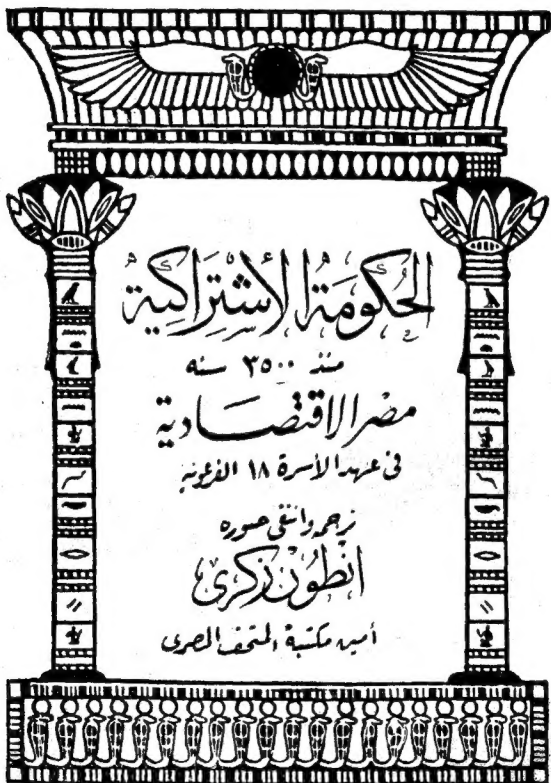 الحكومة الاشتراكية
منذ ٣٥٠٠ سنه
مصر الاقتصادية
فى عهد الأسرة ١٨ الفرعونيه
ترجمه وانتقى صوره
انطون زكرى
أمين مكتبة المتحف المصرى